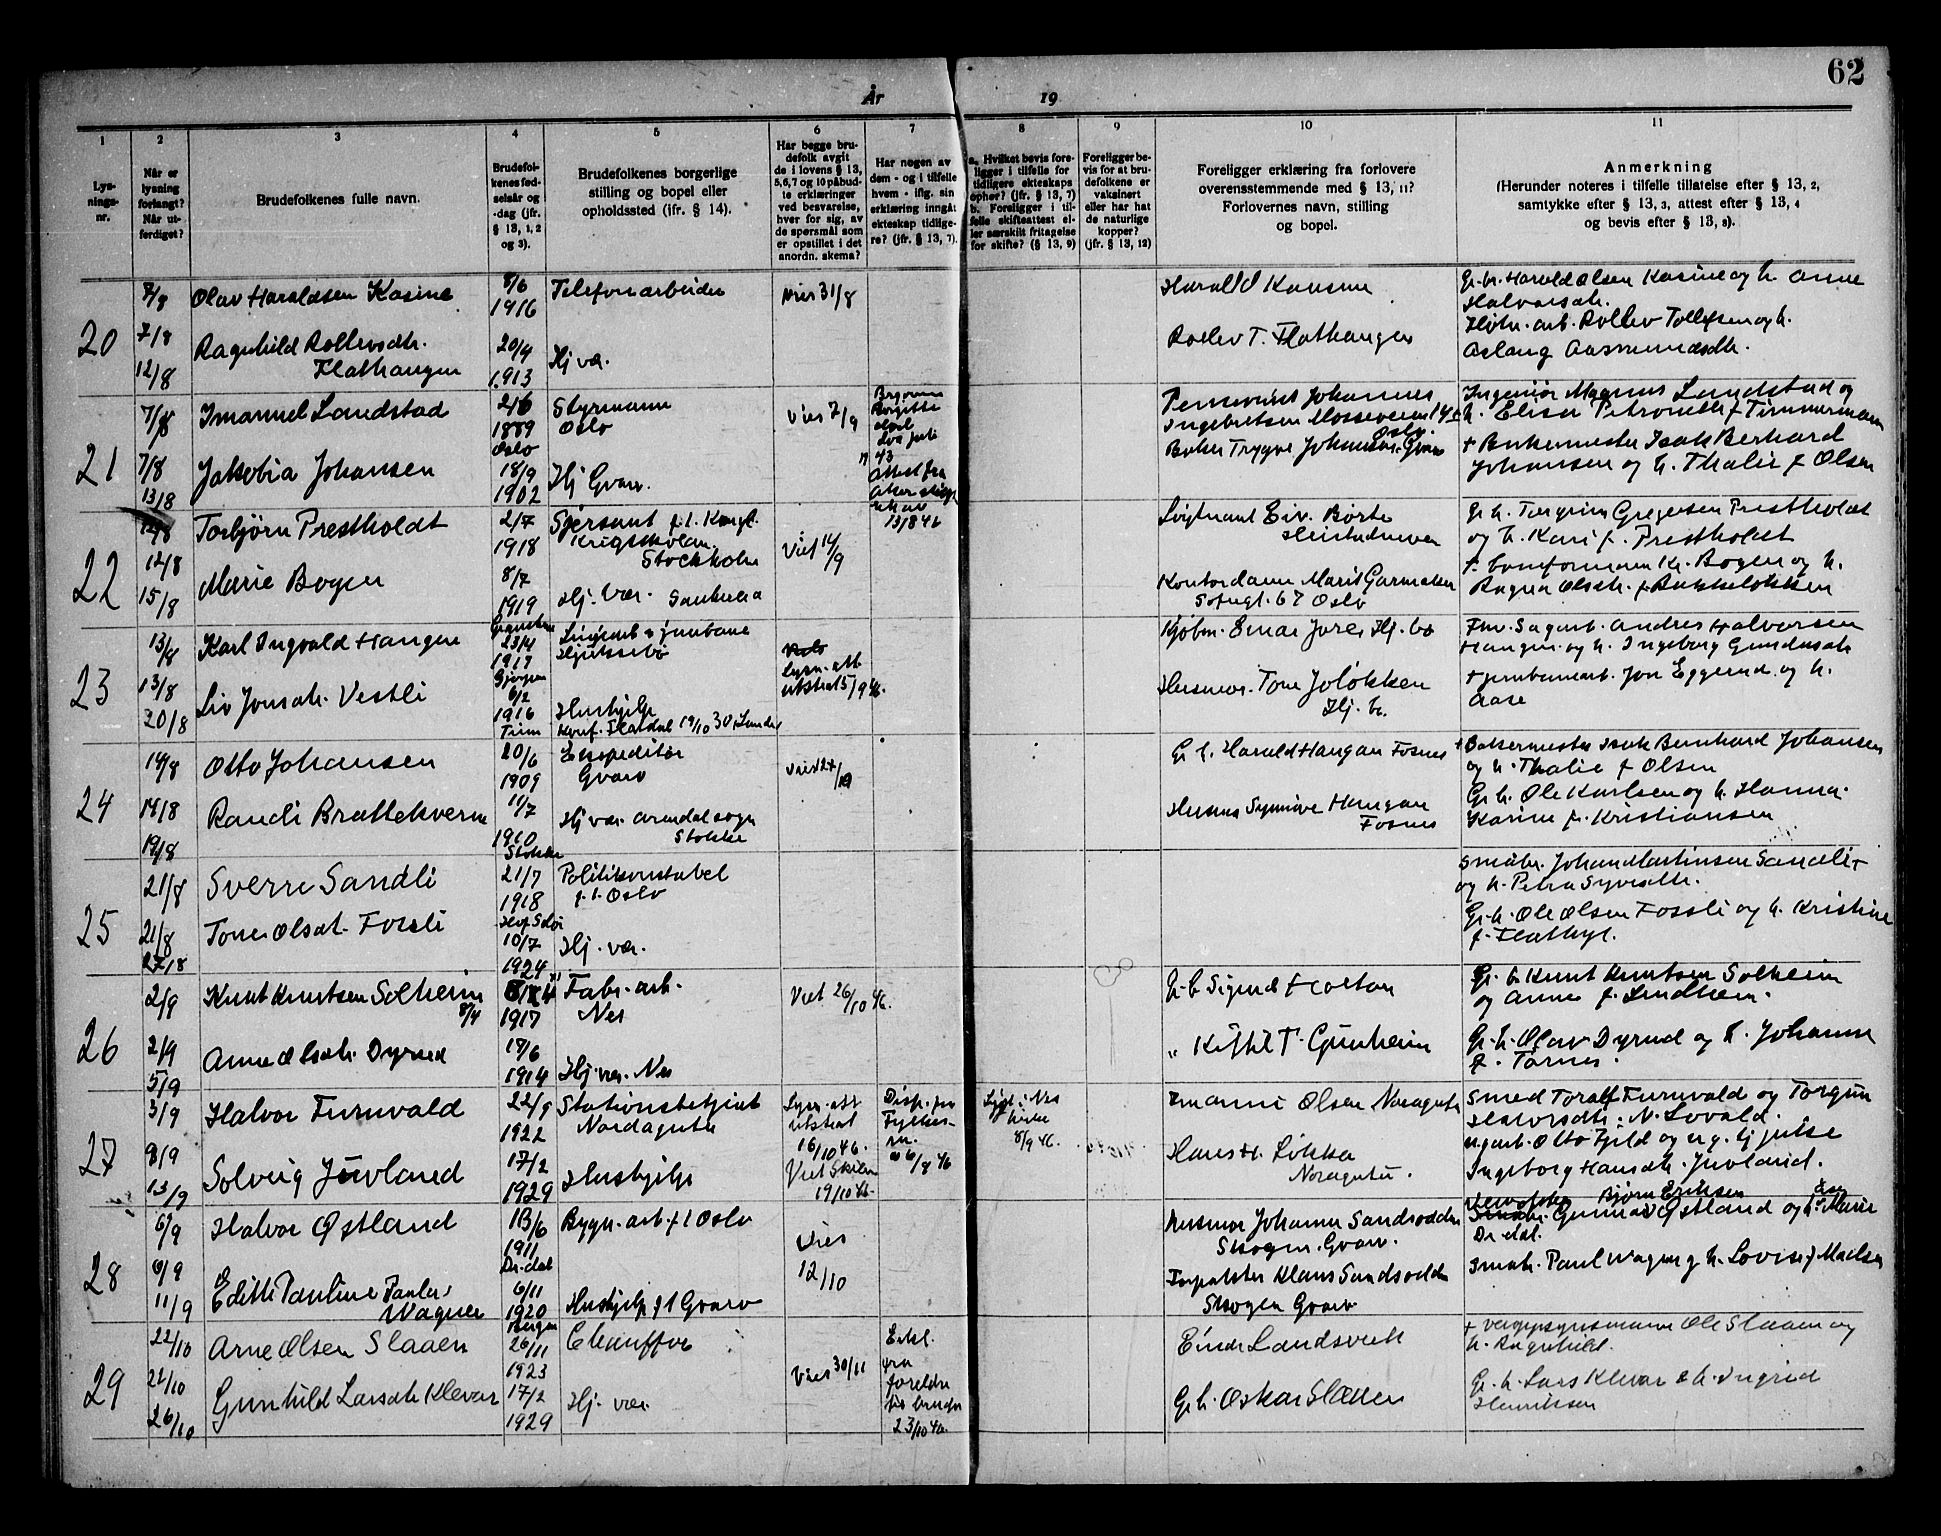 62
År 19
1 2 3 4 5 6 7 8 9 10 11
Lys-
nings-
nr.
Når er
lysning
forlangt?
Når ut-
ferdiget?
Brudefolkenes fulle navn.
Brudefol-
kenes fød-
selsår og
-dag (jfr.
§ 13, 1, 2
og 3).
Brudefolkenes borgerlige
stilling og bopel eller
opholdssted (jfr. § 14).
Har begge bru-
defolk avgit
de i lovens § 13,
5, 6, 7 og 10 påbud-
te erklæringer
ved besvarelse,
hver for sig, av
de spørsmål som
er opstillet i det
anordn. skema?
Har nogen av
dem - og i tilfelle
hvem - iflg. sin
erklæring inngåt
ekteskap tidlige-
re? (jfr. § 13, 7).
a. Hvilket bevis fore-
ligger i tilfelle for
tidligere ekteskaps
ophør? (jfr. § 13, 7)
b. Foreligger i til-
felle skifteattest el-
ler særskilt fritagelse
for skifte? (§ 13, 9)
Foreligger be-
vis for at bru-
defolkene er
vaksinert
eller har hat
de naturlige
kopper?
(jfr. § 13, 12)
Foreligger erklæring fra forlovere
overensstemmende med § 13, 11?
Forlovernes navn, stilling
og bopel.
Anmerkning
(Herunder noteres i tilfelle tillatelse efter § 13, 2,
samtykke efter § 13, 3, attest efter § 13, 4
og bevis efter § 13, 8).
20
7/8
7/8
12/8
Olav Haraldsen Kasine
Ragnhild Rollevsdtr.
Flathangen
8/6
1916
20/4
1913
Telefonarbeider
Hj. vær.
Vies 31/8
Harald
Rollev T. Flathangen
Gr. br. Harald Olsen Kasine og h. Anne
Halvorsdtr.
arb. Rollev Tollefsen og h.
Aslaug Aasmundsdtr.
21
7/8
7/8
13/8
Imanuel Landstad
Jakobia Johansen
2/6
1889
Oslo
18/9
1902
Styrmann
Oslo
Hj Gvarv.
Vies 7/9
Attest fra
Aker
13/8 46
Johannes
Ingebretsen
Oslo.
Baker Trygve Johansen, Gvarv
Ingeniør Magnus Landstad og
h. Elisa Petronella f. Timmermann
+ Bakermester Isak Berhard
Johansen og h. Thalie f Olsen
22
12/8
12/8
15/8
Torbjørn Prestholdt
Marie Bogen
2/7
1918
8/7
1919
Sjersant f. t. Kongl.
Krigsskolan
Stockholm
Hj. vær. Sauherad
Viet 14/9
Løytnant Eiv. Børte
Kontordame Marit Garmaker
Sofiegt. 67 Oslo
Gr. h. Torgrim Gregersen Prestholdt
og h. Kari f. Prestholdt
Kr. Bogen og h.
Ragna Olsdtr. f
23
13/8
13/8
20/8
Karl Ingvald Haugen
Liv Jonsdtr. Vestli
23/4
1917
6/2
1916
Tinn
Hjuksebø
Hushjelp
Konf. Flatdal 19/10 30
Lysn. att
utstedt 5/9 46.
Kjøbm. Einar Jore Hj. bø
Husmor. Tone Joløkken
Hj. b.
Sagarb. Andres Halvorsen
Haugen og h. Ingeborg Gundersdtr
+ jernbanearb. Jon Eggerud og h.
Aase
24
14/8
14/8
19/8
Otto Johansen
Randi Brattekverne
20/6
1909
11/7
1910
Stokke
Ekspeditør
Gvarv
Hj vær. Arendal sogn
Stokke
Vies 27/10
Gr. h. Harald Haugan Fosnes
Husmor Synnøve Haugan
Fosnes
+ Bakermester Isak Bernhard Johansen
og h. Thalie f Olsen
Gr. h. Ole Karlsen og h. Hanna
Karine f. Kristiansen
25
21/8
21/8
27/8
Sverre Sandli
Tone Olsdt. Fossli
21/7
1918
10/7
1924
Politikonstabel
f. t. Oslo
Hj. vær.
Småbr. Johan Martinsen Sandli
og h. Petra Syversdtr.
Gr. h. Ole Olsen Fossli og h. Kristine
f.
26
2/9
2/9
5/9
Knut Knutsen Solheim
8/4
Anne Olsdtr. Dyrud
1917
18/6
1914
Fabr. arb.
Nes
Hj. vær. Nes
Viet 26/10 46.
Gr. b Sigurd Holtan
" Kittil T. Gunheim
Gr. b Knut Knutsen Solheim
og Anne f. Lindheim.
Gr. h. Olav Dyrud og h. Johanne
f. Tornes.
27
3/9
9/9
13/9
Halvor Furuvald
Solveig Juvland
22/9
1922
17/2
1929
Stationsbetjent
Nordagutu
Hushjelp
Lysn. att
utstedt
16/10 46.
Viet Skien
19/10 46.
Disp. fra
Fylkes-
m.
6/8 46
Lyst i Nes
kirke
8/9 46.
Olsen Noragutu
Hans H. Løkka
Noragutu.
Smed Toralf Furuvald og Torgun
Halvorsdtr. N. Lovald.
Otto Fjeld og ug. tj. pike
Ingeborg Hansdtr. Juvland.
28
6/9
6/9
11/9
Halvor Østland
Edith Pauline Paulsd
Wagner
13/6
1911
6/11
1920
Bergen
Bygn. arb. f t Oslo
Hushjelp f t Gvarv
Vies
12/10
Husmor Johanne Sandsodden
Skogen, Gvarv.
Klaus Sandsodden
Skogen Gvarv
Bjørn Eriksen
Gunnar Østland og h. Marie
Småbr. Paul Wagner og h. Lovise f Madsen
29
22/10
22/10
26/10
Arne Olsen Slaaen
Gunhild Larsdtr. Klevar
26/11
1923
17/2
1929
Chauffør
Hj. vær.
Vies 30/11
Erkl.
fra
foreldre
for bruden
23/10 46.
Einar Landsverk
Gr. h. Oskar Slaaen
Ole Slaaen og
h. Ragnhild.
Gr. h. Lars Klevar & h. Ingrid
Henriksen